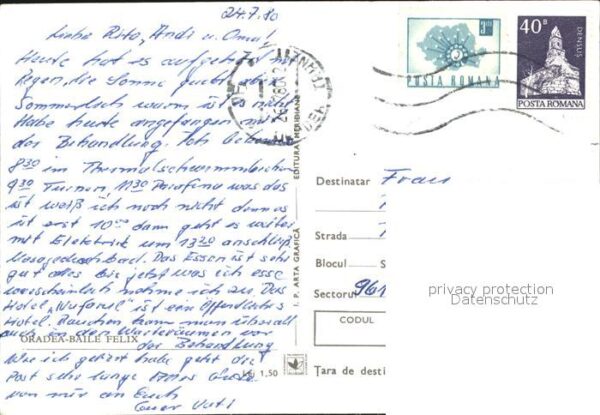 24.7.80
Liebe Rita, Andi u. Omi!
Heute hat es aufgehört mit
Regen, die Sonne guckt aber
Sommerlich warm ist es nicht
Habe heute angefangen mit
der Behandlung. Ich
8 30 im Thermalschwimmbecken
9 30 Turnen, 11 30 Parafina was das
ist weiß ich noch nicht denn es
ist erst 10 dann geht es weiter
mit Elektrik um 13 20 anschluß
das Essen ist sehr
gut alles bis jetzt was ich esse
warscheinlich nehme ich zu. Das
Hotel „Nufarul" ist ein öffendliches
Hotel. Rauchen kann man überall
auch in den Warteräumen vor
der Behandlung
Wie ich gehört habe geht die
Post sehr lange
von mir an Euch
Euer Vati
ORADEA-BAILE FELIX
Lei 1,50
I. P. ARTA GRAFICĂ
EDITURA MERIDIANE
POSTA ROMANA
40 B
DENSUȘ
POSTA ROMANA
Destinatar Frau
Strada
Blocul S
Sectorul 961
CODUL
Țara de desti
privacy protection
Datenschutz